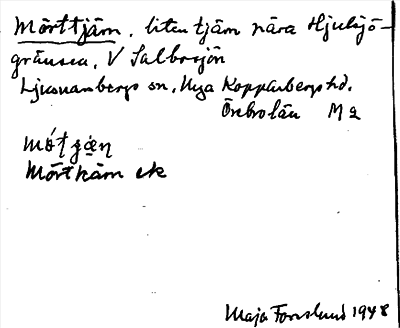 Mörttjärn, liten tjärn nära Hjulsjö-
gränsen, V Salbosjön
Ljusnarsbergs sn, Nya Kopparbergs hd.
Örebro län M 2
Mörtkärn ek
Maja Forsslund 1948